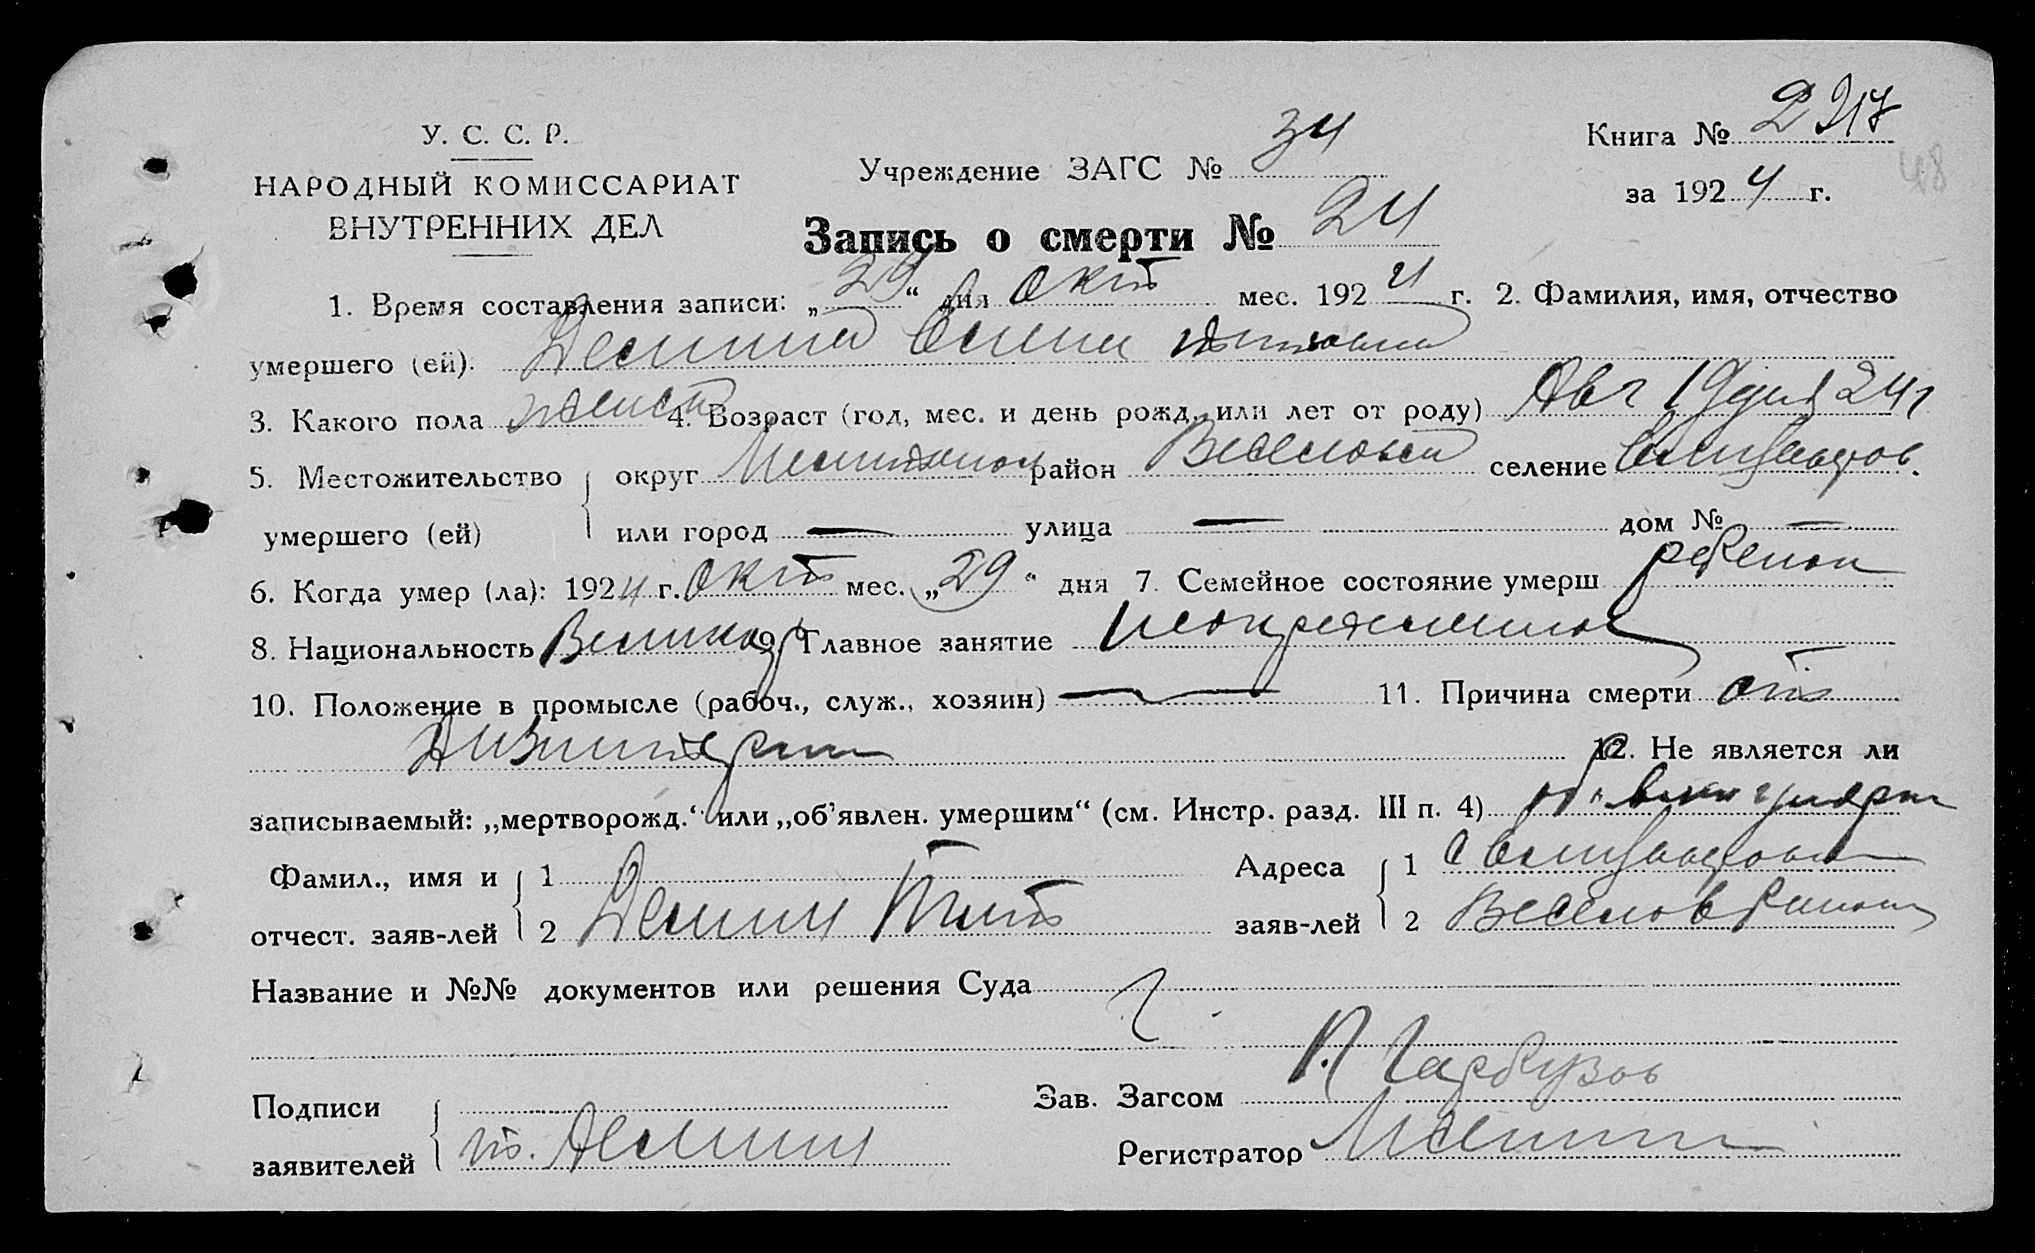 У. С. С. Р.
НАРОДНЫЙ КОМИССАРИАТ
ВНУТРЕННИХ ДЕЛ
Учреждение ЗАГС № 34
Книга №
48
за 1924 г.
Запись о смерти № 24
1. Время составления записи: „29“ дня Окт мес. 1924 г. 2. Фамилия, имя, отчество
умершего (ей).
3. Какого пола женск 4. Возраст (год, мес. и день рожд. или лет от роду) Авг 19 дня 24 г
5. Местожительство округ район селение
умершего (ей) или город — улица — дом № —
6. Когда умер (ла): 1924 г. Окт мес. „29“ дня 7. Семейное состояние умерш ребенок
8. Национальность 9. Главное занятие
10. Положение в промысле (рабоч., служ., хозяин) — 11. Причина смерти от
Дизинтерии 12. Не является ли
записываемый: „мертворожд.“ или „об’явлен. умершим“ (см. Инстр. разд. III п. 4)
Фамил., имя и 1 Адреса 1
отчест. заяв-лей 2 Демин Тит заяв-лей 2
Название и №№ документов или решения Суда
Подписи Зав. Загсом П Гарбузов
заявителей т. Демин Регистратор